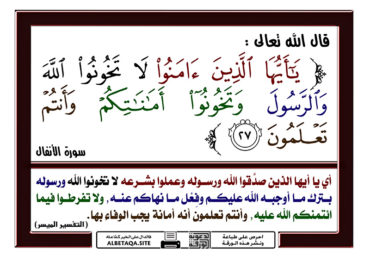 قال الله تعالى :
يَـٰٓأَيُّهَا ٱلَّذِينَ ءَامَنُوا۟ لَا تَخُونُوا۟ ٱللَّهَ
وَٱلرَّسُولَ وَتَخُونُوٓا۟ أَمَـٰنَـٰتِكُمْ وَأَنتُمْ
تَعْلَمُونَ ﴿٢٧﴾
سورة الأنفال
أي يا أيها الذين صدَّقوا الله ورسوله وعملوا بشرعه لا تخونوا الله ورسوله
بترك ما أوجبه الله عليكم وفعْل ما نهاكم عنه، ولا تفرطوا فيما
ائتمنكم الله عليه، وأنتم تعلمون أنه أمانة يجب الوفاء بها.
(التفسير الميسر)
احرص على طباعة
ونشر هذه الورقة
ALBETAQA.SITE